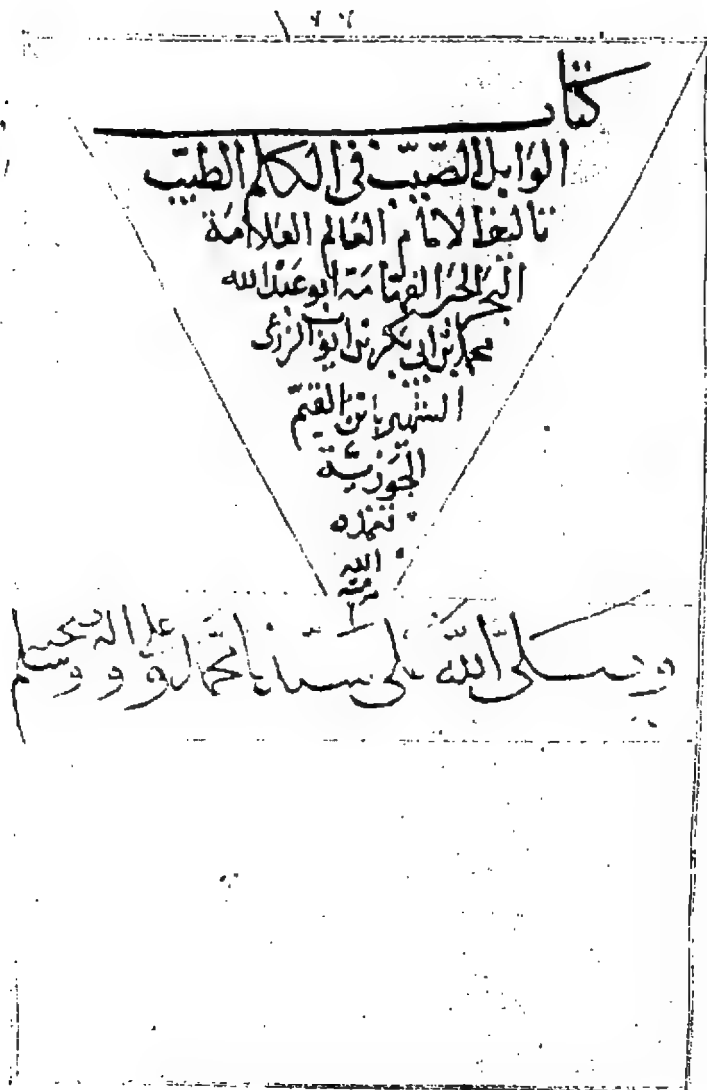 كتاب
الوابل الصيّب في الكلم الطيّب
تاليف الامام العالم العلامة
البحر الحبر الفهامة ابو عبد الله
محمد بن ابي بكر بن ايوب الزرعي
الشهير بابن القيم
الجوزية
تغمده
الله
برحمته
وصلى الله على سيدنا محمد وعلى اله وصحبه وسلم